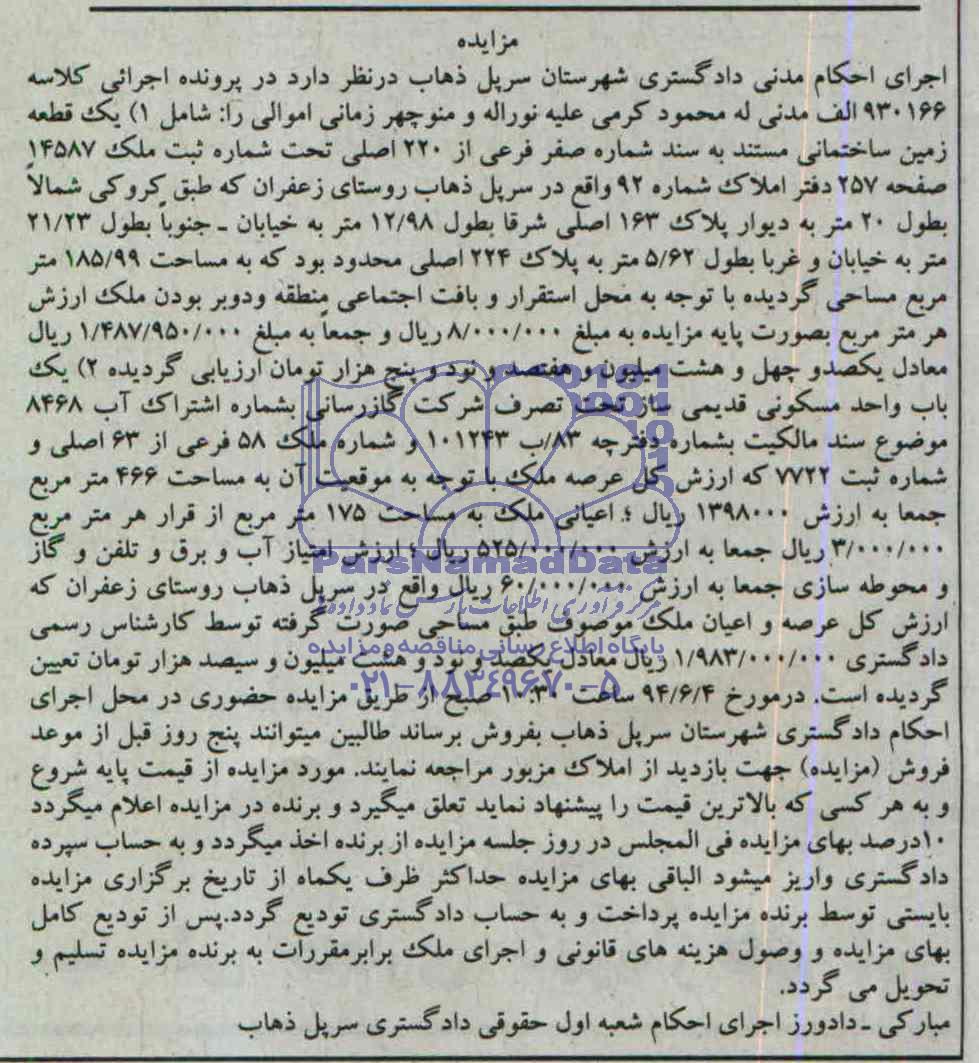 مزایده
اجرای احکام مدنی دادگستری شهرستان سرپل ذهاب درنظر دارد در پرونده اجرائی کلاسه
۹۳۰۱۶۶ الف مدنی له محمود کرمی علیه نوراله و منوچهر زمانی اموالی را: شامل ۱) یک قطعه
زمین ساختمانی مستند به سند شماره صفر فرعی از ۲۲۰ اصلی تحت شماره ثبت ملک ۱۴۵۸۷
صفحه ۲۵۷ دفتر املاک شماره ۹۲ واقع در سرپل ذهاب روستای زعفران که طبق کروکی شمالاً
بطول ۲۰ متر به دیوار پلاک ۱۶۳ اصلی شرقا بطول ۱۲/۹۸ متر به خیابان ـ جنوباً بطول ۲۱/۲۳
متر به خیابان و غربا بطول ۵/۶۲ متر به پلاک ۲۲۴ اصلی محدود بود که به مساحت ۱۸۵/۹۹ متر
مربع مساحی گردیده با توجه به محل استقرار و بافت اجتماعی منطقه ودوبر بودن ملک ارزش
هر متر مربع بصورت پایه مزایده به مبلغ ۸/۰۰۰/۰۰۰ ریال و جمعاً به مبلغ ۱/۴۸۷/۹۵۰/۰۰۰ ریال
معادل یکصدو چهل و هشت میلیون و هفتصد و نود و پنج هزار تومان ارزیابی گردیده ۲) یک
باب واحد مسکونی قدیمی ساز تحت تصرف شرکت گازرسانی بشماره اشتراک آب ۸۴۶۸
موضوع سند مالکیت بشماره دفترچه ۸۳/ب ۱۰۱۲۴۳ و شماره ملک ۵۸ فرعی از ۶۳ اصلی و
شماره ثبت ۷۷۲۲ که ارزش کل عرصه ملک با توجه به موقعیت آن به مساحت ۴۶۶ متر مربع
جمعا به ارزش ۱۳۹۸۰۰۰ ریال ؛ اعیانی ملک به مساحت ۱۷۵ متر مربع از قرار هر متر مربع
۳/۰۰۰/۰۰۰ ریال جمعا به ارزش ۵۲۵/۰۰۰/۰۰۰ ریال ؛ ارزش امتیاز آب و برق و تلفن و گاز
و محوطه سازی جمعا به ارزش ۶۰/۰۰۰/۰۰۰ ریال واقع در سرپل ذهاب روستای زعفران که
ارزش کل عرصه و اعیان ملک موصوف طبق مساحی صورت گرفته توسط کارشناس رسمی
دادگستری ۱/۹۸۳/۰۰۰/۰۰۰ ریال معادل یکصد و نود و هشت میلیون و سیصد هزار تومان تعیین
گردیده است. درمورخ ۹۴/۶/۴ ساعت ۱۰:۳۰ صبح از طریق مزایده حضوری در محل اجرای
احکام دادگستری شهرستان سرپل ذهاب بفروش برساند طالبین میتوانند پنج روز قبل از موعد
فروش (مزایده) جهت بازدید از املاک مزبور مراجعه نمایند. مورد مزایده از قیمت پایه شروع
و به هر کسی که بالاترین قیمت را پیشنهاد نماید تعلق میگیرد و برنده در مزایده اعلام میگردد
۱۰درصد بهای مزایده فی المجلس در روز جلسه مزایده از برنده اخذ میگردد و به حساب سپرده
دادگستری واریز میشود الباقی بهای مزایده حداکثر ظرف یکماه از تاریخ برگزاری مزایده
بایستی توسط برنده مزایده پرداخت و به حساب دادگستری تودیع گردد.پس از تودیع کامل
بهای مزایده و وصول هزینه های قانونی و اجرای ملک برابرمقررات به برنده مزایده تسلیم و
تحویل می گردد.
مبارکی ـ دادورز اجرای احکام شعبه اول حقوقی دادگستری سرپل ذهاب
ParsNamadData
مرکز فرآوری اطلاعات پارس نماد داده
پایگاه اطلاع رسانی مناقصه و مزایده
۰۲۱-۸۸۳۴۹۶۷۰-۵